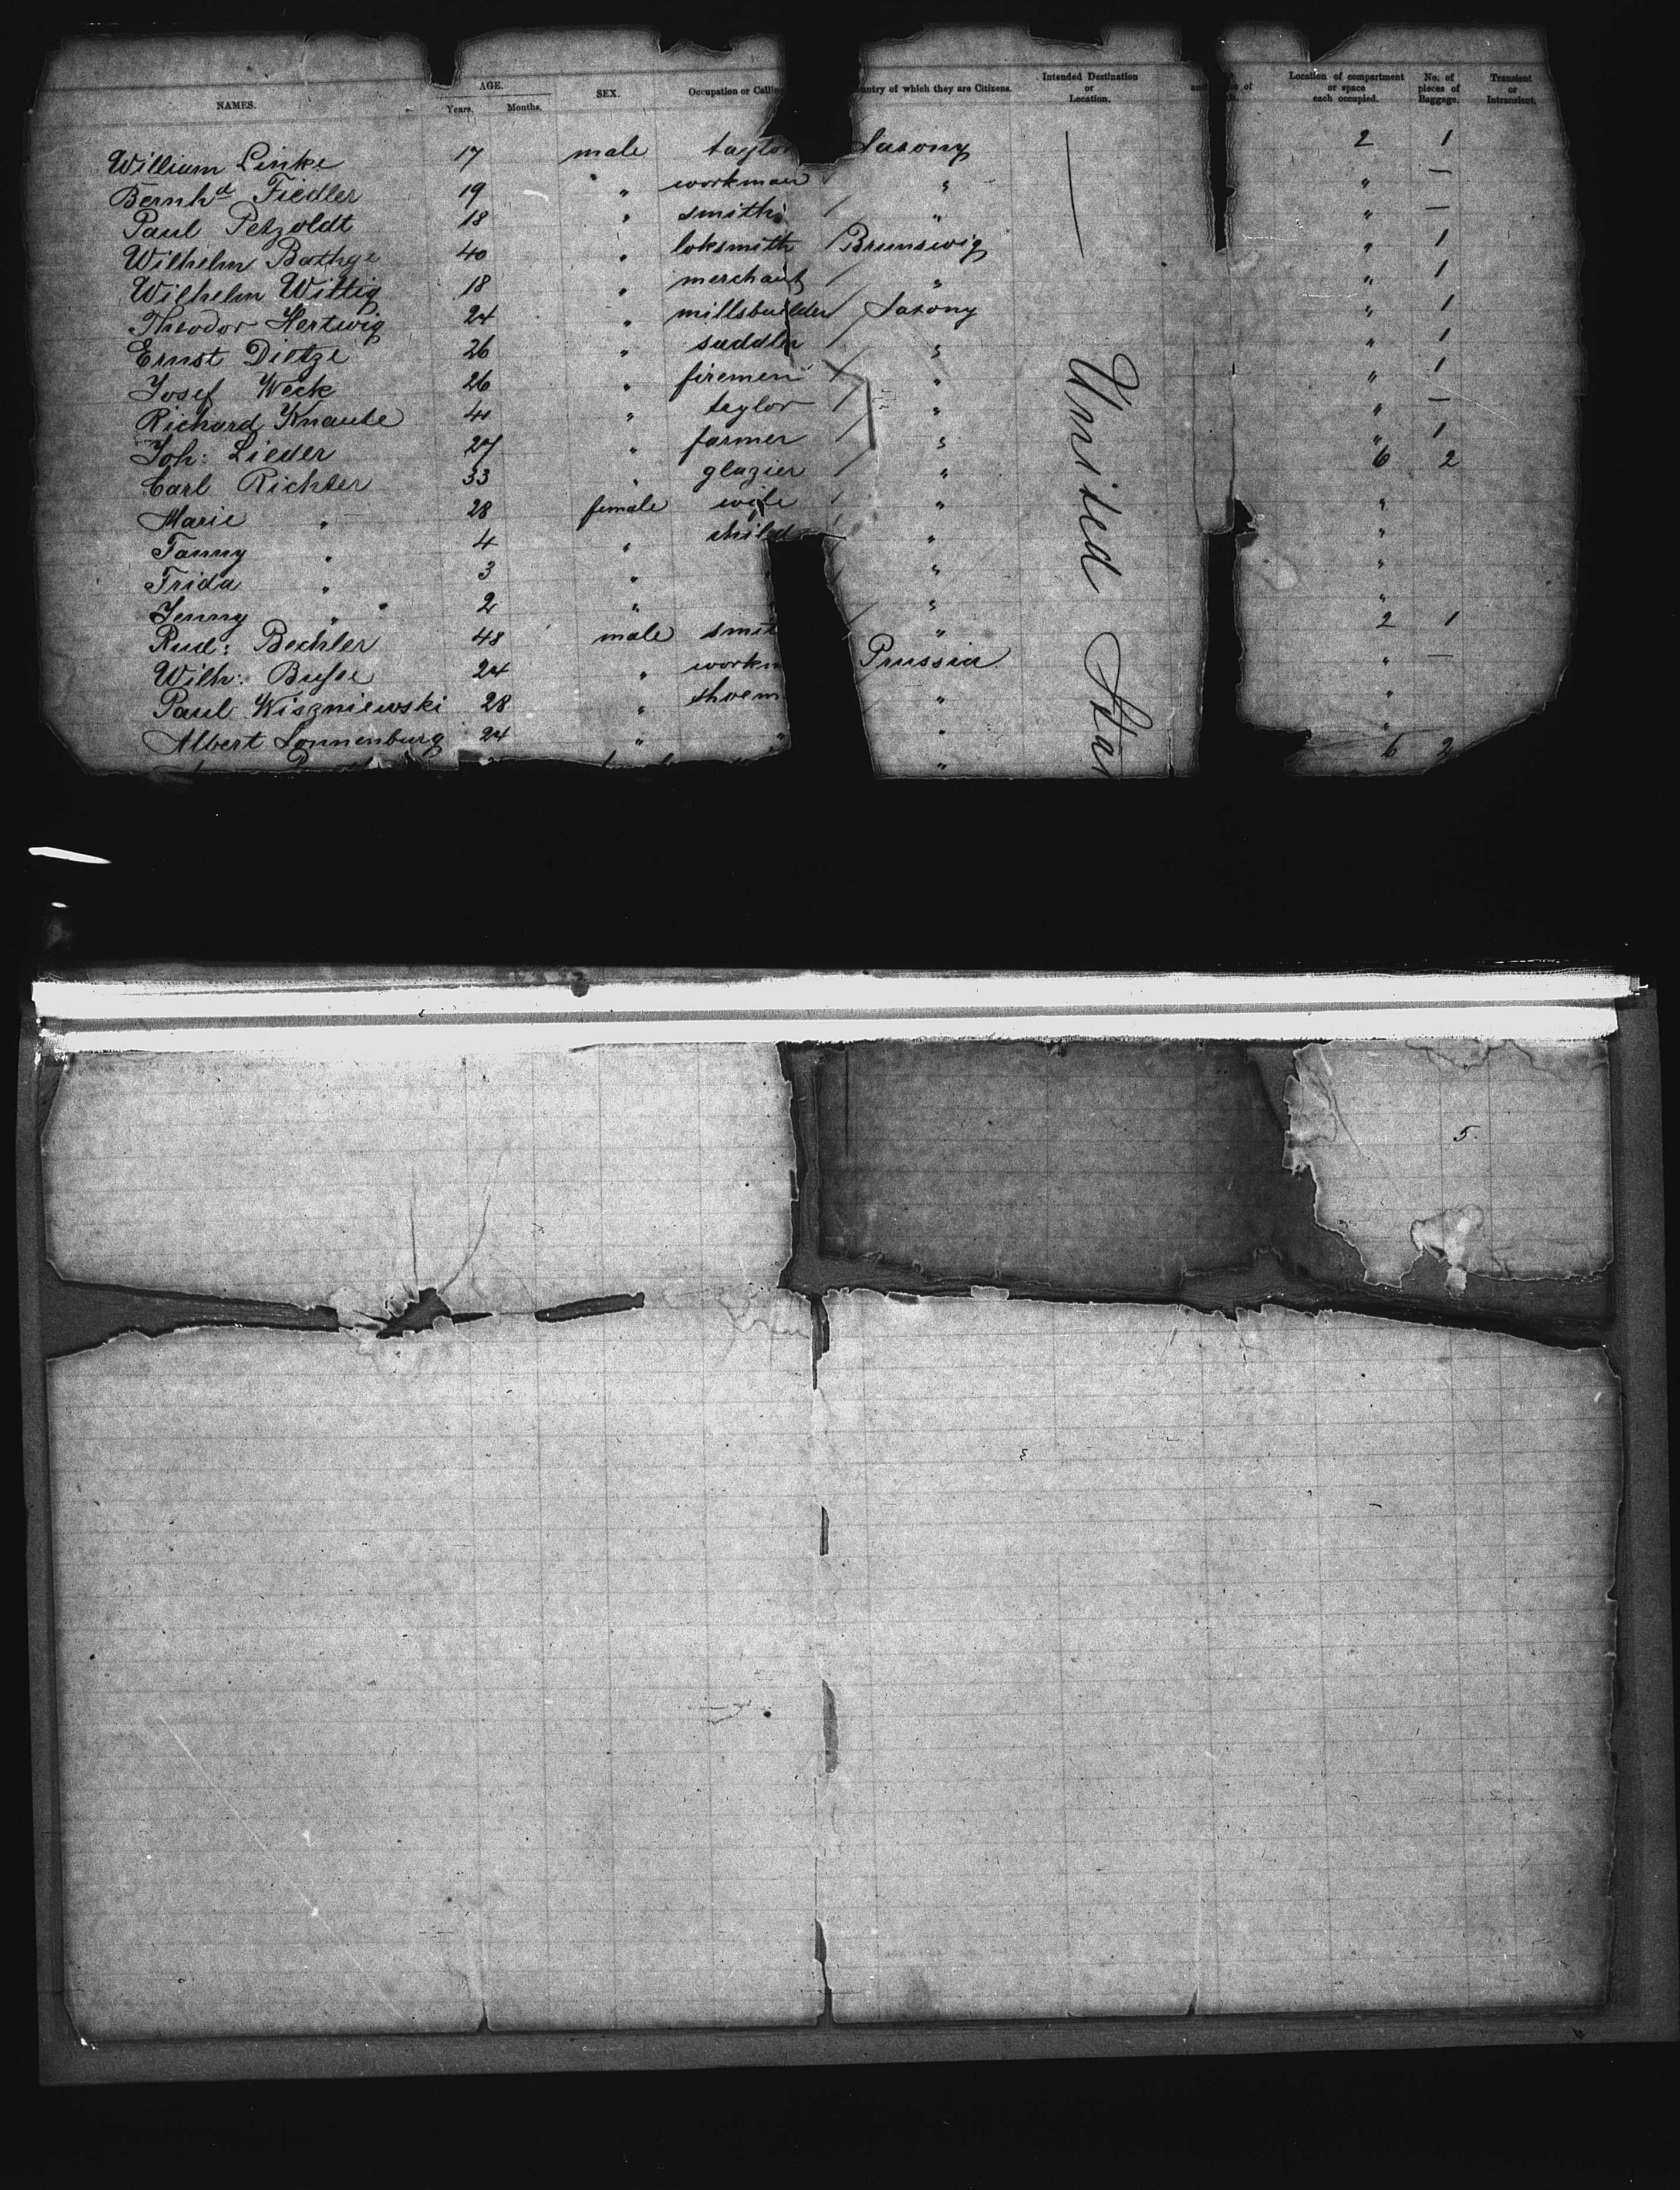 NAMES. AGE. Years. Months. SEX. Occupation or Calling untry of which they are Citizens. Intended Destination or Location. Location of compartment or space each occupied. No. of pieces of Baggage. Transient or Intransient.
William Linke 17 male taylor Saxony 2 1
Bernhd Fiedler 19 " workman " " —
Paul Petzoldt 18 " smith " " —
Wilhelm Bathge 40 " loksmith Brunswig " 1
Wilhelm Wittig 18 " merchant " " 1
Theodor Hertwig 24 " millsbuilder Saxony " 1
Ernst Dietze 26 " saddler " " 1
Josef Weck 26 " firemen " " 1
Richard Knaute 41 " taylor " " —
Joh: Lieder 27 " farmer " " 1
Carl Richter 33 " glazier " 6 2
Marie " 28 female wife " "
Fanny " 4 " child " "
Frida " 3 " " "
Jenny " 2 " " "
Rud: Bechler 48 male smit " 2 1
Wilh: Busse 24 " workm Prussia " —
Paul Wiszniewski 28 " shoem " "
Albert Sonnenburg 24 " " " "
" 6 2
United Sta
5.